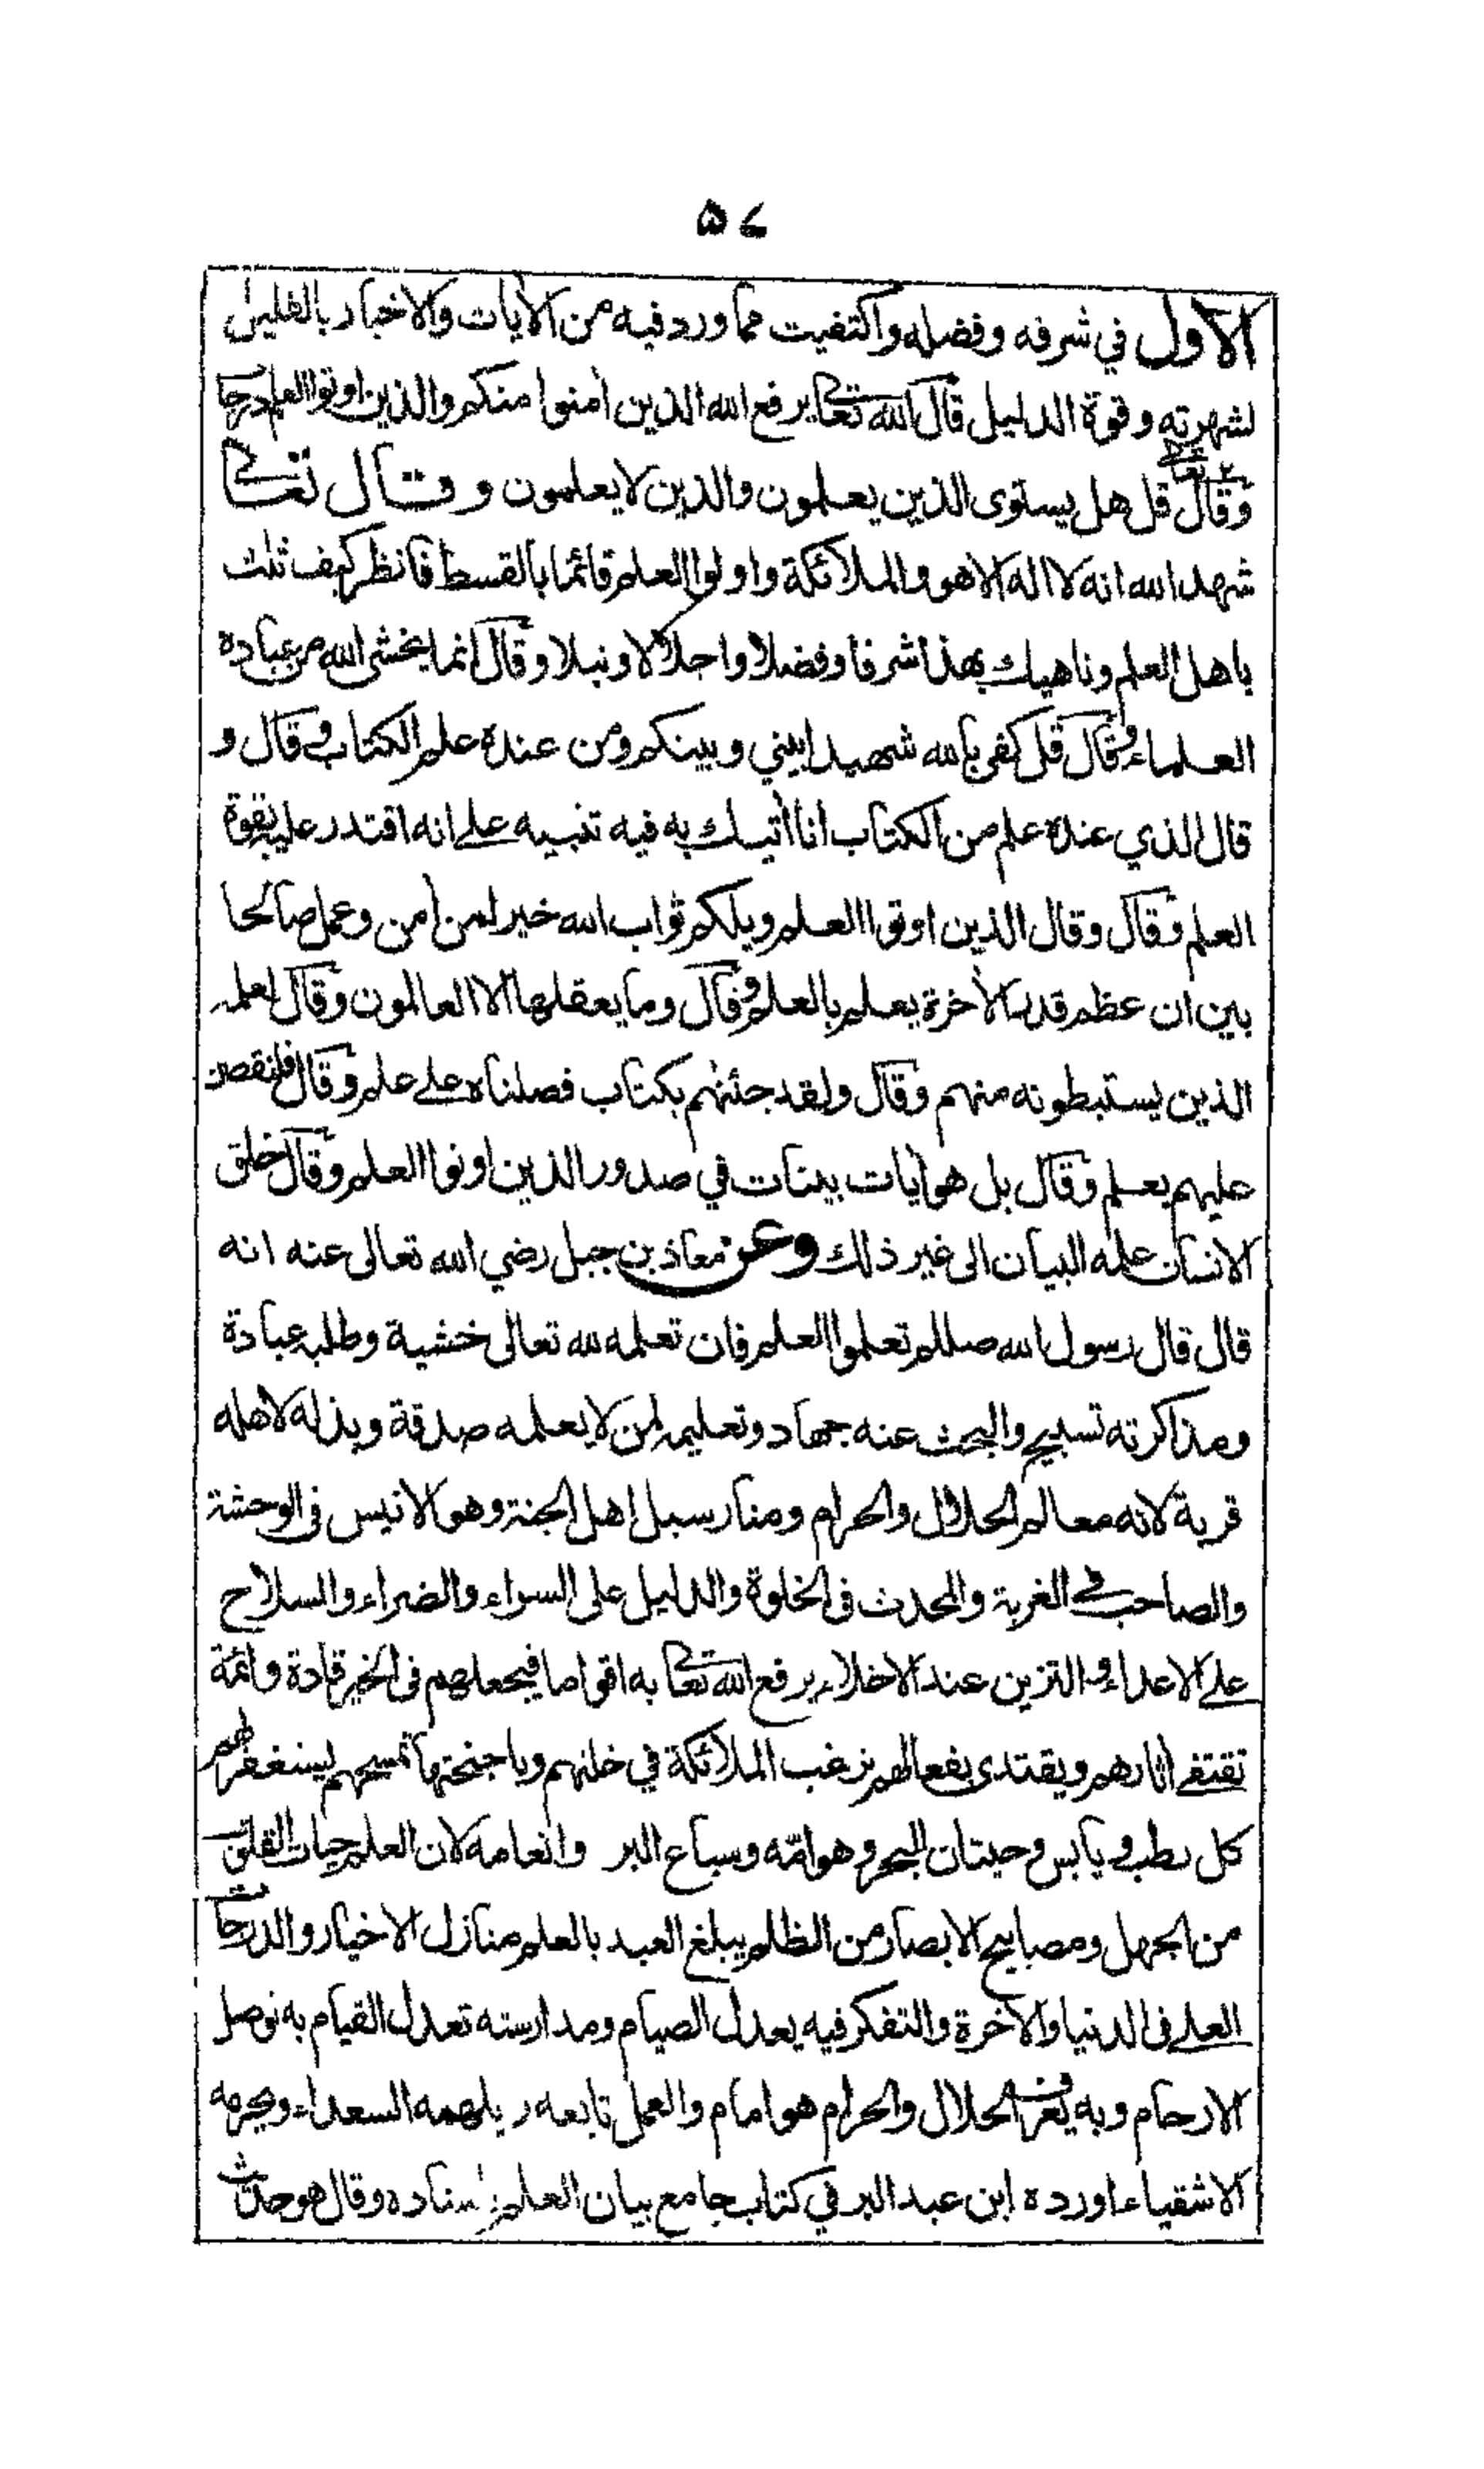 ۵۷
الاول في شرفه وفضله واكتفيت مما ورد فيه من الآيات والاخبار بالقليل
لشهرته وقوة الدليل قال الله تعالى يرفع الله الذين آمنوا منكم والذين اوتوا العلم درجات
وقال تعالى قل هل يستوى الذين يعلمون والذين لا يعلمون وقال تعالى
شهد الله انه لا اله الا هو والملائكة واولوا العلم قائما بالقسط فانظر كيف ثلث
باهل العلم وناهيك بهذا شرفا وفضلا واجلالا ونبلا وقال انما يخشى الله من عباده
العلماء وقال قل كفى بالله شهيدا بيني وبينكم ومن عنده علم الكتاب وقال و
قال الذي عنده علم من الكتاب انا آتيك به فيه تنبيه على انه اقتدر عليه بقوة
العلم وقال وقال الذين اوتوا العلم ويلكم ثواب الله خير لمن آمن وعمل صالحا
بين ان عظم قدر الآخرة يعلم بالعلم وقال وما يعقلها الا العالمون وقال لعلمه
الذين يستبطونه منهم وقال ولقد جئنهم بكتاب فصلناه على علم وقال فلنقصن
عليهم بعلم وقال بل هو آيات بينات في صدور الذين اوتوا العلم وقال خلق
الانسان علمه البيان الى غير ذلك وعن معاذ بن جبل رضي الله تعالى عنه انه
قال قال رسول الله صللم تعلموا العلم فان تعلمه لله تعالى خشية وطلبه عبادة
ومذاكرته تسبيح والبحث عنه جهاد وتعليمه لمن لا يعلمه صدقة وبذله لاهله
قربة لانه معالم الحلال والحرام ومنار سبل اهل الجنة وهو الانيس فى الوحشة
والصاحب في الغربة والمحدث فى الخلوة والدليل على السراء والضراء والسلاح
على الاعداء والتزين عند الاخلاء يرفع الله تعالى به اقواما فيجعلهم فى الخير قادة وائمة
تقتفى آثارهم ويقتدى بفعالهم ترغب الملائكة في خلتهم وباجنحتها تمسحهم يستغفر لهم
كل رطب ويابس وحيتان البحر وهوامّه وسباع البر وانعامه لان العلم حيات القلوب
من الجهل ومصابيح الابصار من الظلم يبلغ العبد بالعلم منازل الاخيار والدرجات
العلى فى الدنيا والآخرة والتفكر فيه يعدل الصيام ومدارسته تعدل القيام به توصل
الارحام وبه يعرف الحلال والحرام هو امام والعمل تابعه يلهمه السعداء ويحرمه
الاشقياء اورده ابن عبد البر في كتاب جامع بيان العلم باسناده وقال هو حديث